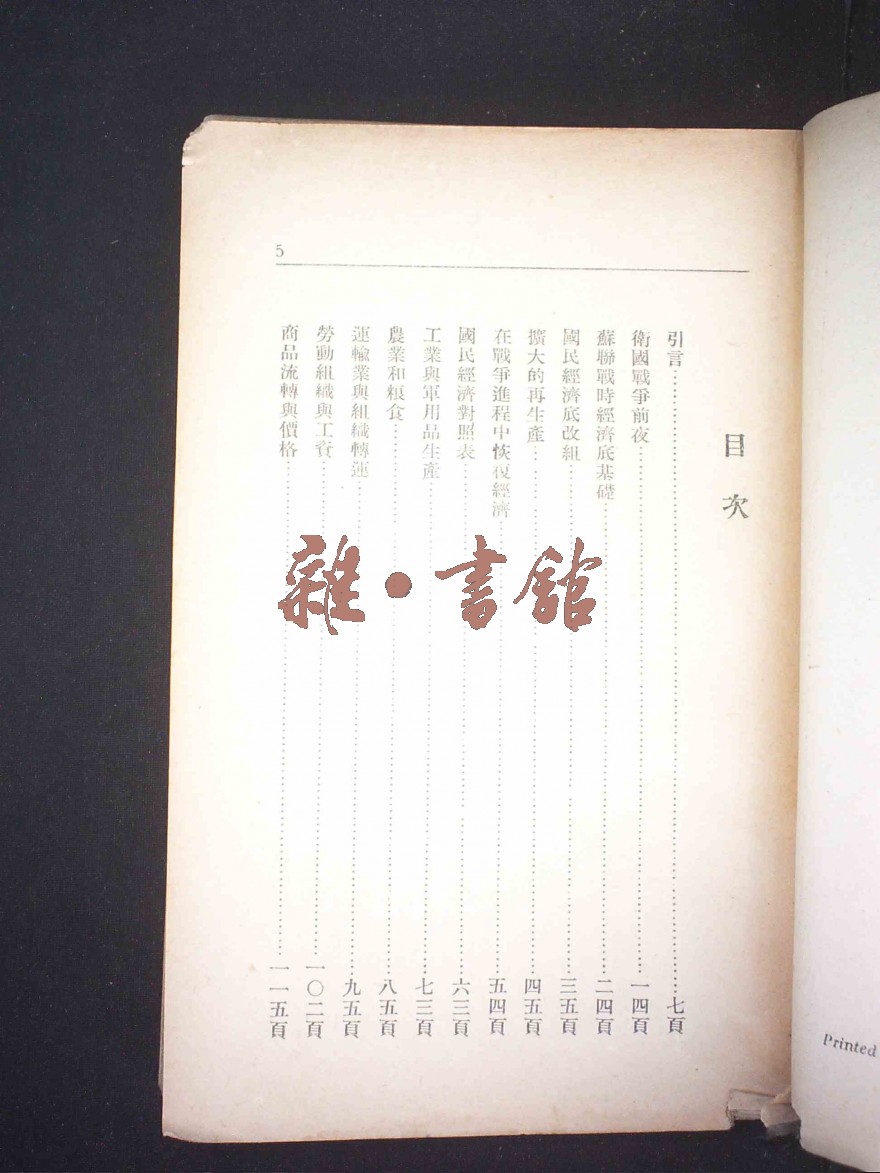 5
目次
引言……七頁
衛國戰爭前夜……一四頁
蘇聯戰時經濟底基礎……二四頁
國民經濟底改組……三五頁
擴大的再生產……四五頁
在戰爭進程中恢復經濟……五四頁
國民經濟對照表……六三頁
工業與軍用品生產……七三頁
農業和粮食……八五頁
運輸業與組織轉運……九五頁
勞動組織與工資……一〇二頁
商品流轉與價格……一一五頁
雜•書館
Printed